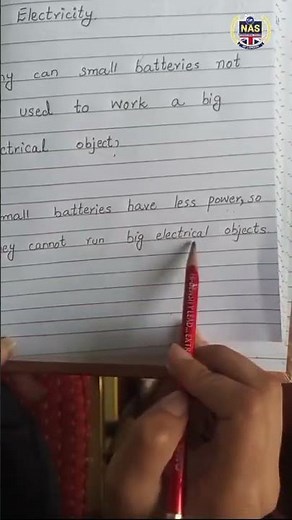 Electricity.
NAS
hy can small batteries not
used to work a big
ctrical object?
mall batteries have less power, so
ey cannot run big electrical objects